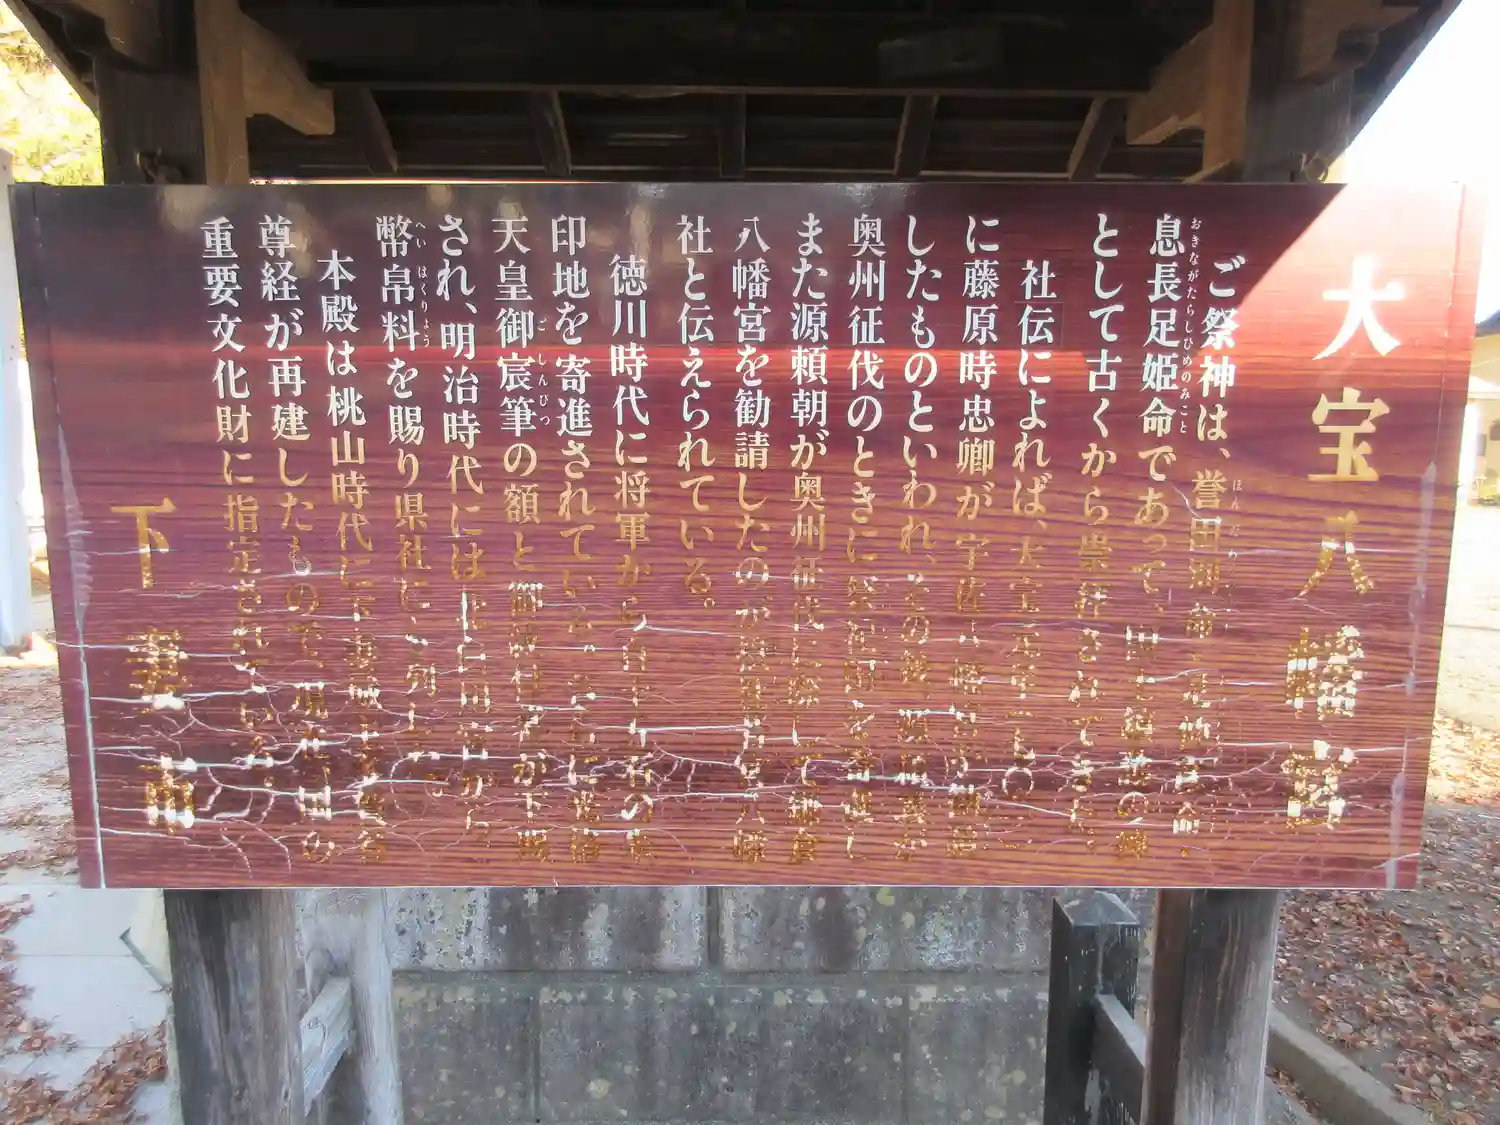 大宝八幡宮
ご祭神は、誉田別命、足仲彦命、
息長足姫命であって、国土鎮護の神
として古くから崇拝されてきた。
社伝によれば、大宝元年(七〇一)
に藤原時忠卿が宇佐八幡宮を勧請
したものといわれ、その後、源頼義が
奥州征伐のときに祭祀料を寄進し
また源頼朝が奥州征伐に際して鎌倉
八幡宮を勧請したのが摂社若宮八幡
社と伝えられている。
徳川時代に将軍から百十五石の朱
印地を寄進されている。さらに光格
天皇御宸筆の額と
され、明治時代には北白川宮から
幣帛料を賜り県社に列した。
本殿は桃山時代に下妻城主多賀谷
尊経が再建したもので、現在、国の
重要文化財に指定されている。
下妻市